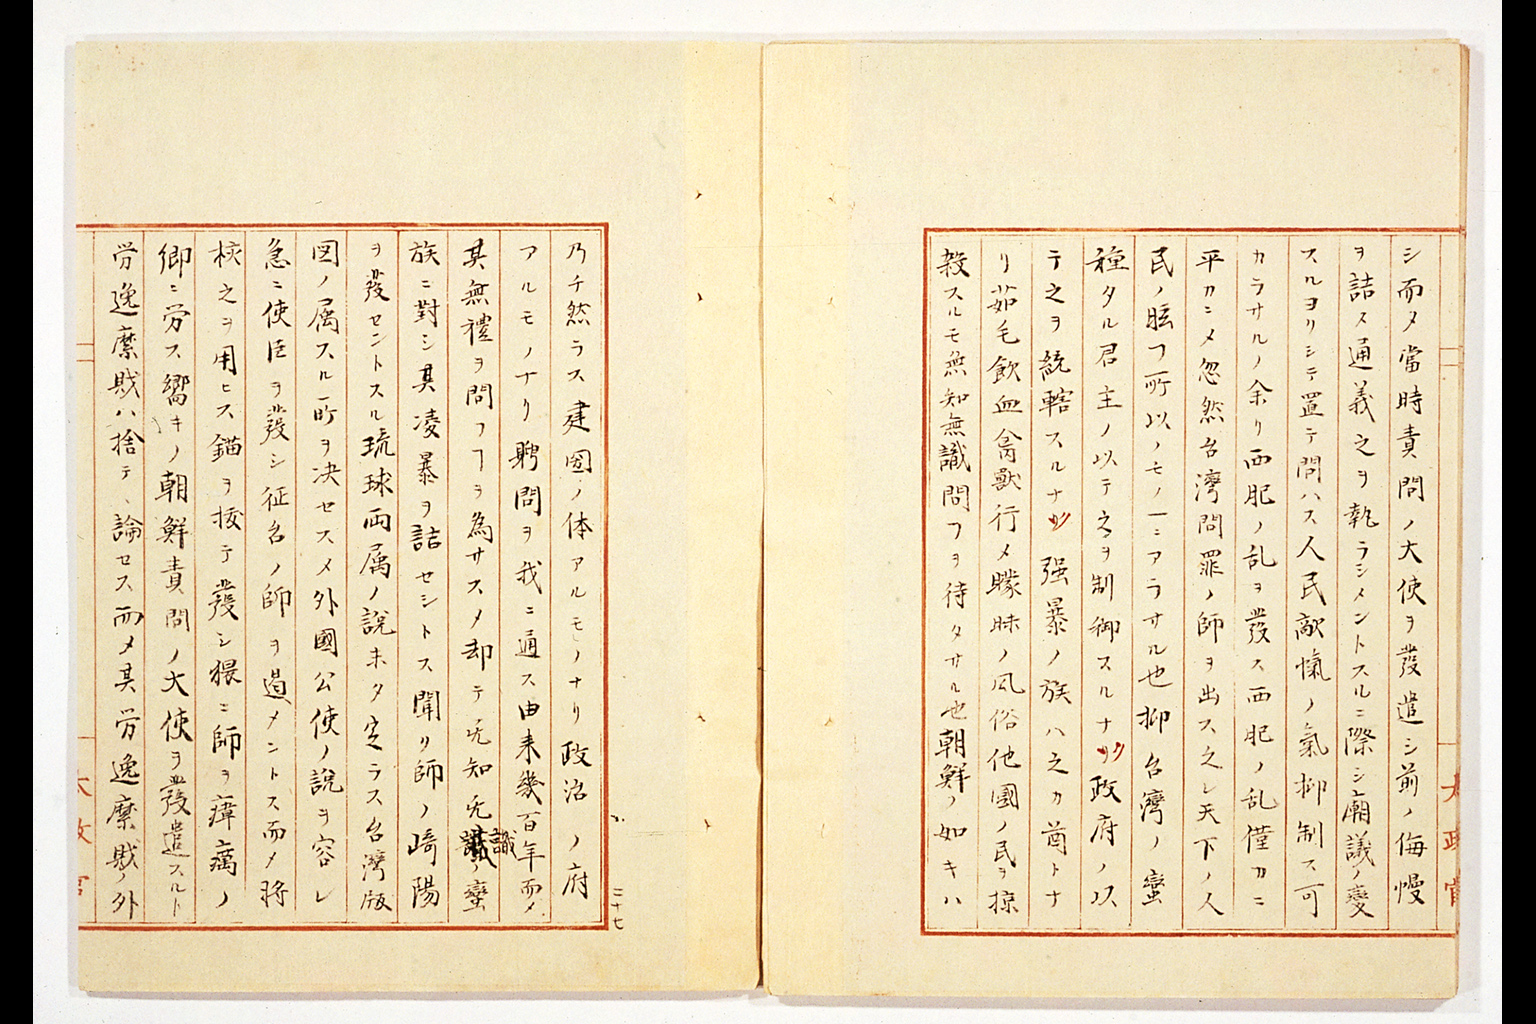 シ而メ當時責問ノ大使ヲ發遣シ前ノ侮慢
ヲ詰ス通義之ヲ執ラシメントスルニ際シ廟議ノ變
スルヨリシテ置テ問ハス人民敵愾ノ氣抑制ス可
カラサルノ余リ西肥ノ乱ヲ發ス西肥ノ乱僅カニ
平カニメ忽然台湾問罪ノ師ヲ出ス之レ天下ノ人
民ノ眩フ所以ノモノ一ニアラサル也抑台湾ノ蠻
種タル君主ノ以テ之ヲ制御スルナク政府ノ以
テ之ヲ統轄スルナク强暴ノ族ハ之カ酋トナ
リ茹毛飲血禽獸行メ矇昧ノ風俗他國ノ民ヲ掠
殺スルモ無知無識問フヲ待タサル也朝鮮ノ如キハ
乃チ然ラス建国ノ体アルモノナリ政治ノ府
アルモノナリ聘問ヲ我ニ通ス由来幾百年而メ
其無禮ヲ問フヿヲ為サスメ却テ无知无識ノ蠻
識
族ニ對シ其凌暴ヲ詰セントス聞リ師ノ崎陽
ヲ發セントスル琉球両属ノ説未タ定ラス台湾版
図ノ属スル所ヲ决セスメ外國公使ノ説ヲ容レ
急ニ使臣ヲ發シ征台ノ師ヲ遏メントス而メ将
校之ヲ用ヒス錨ヲ拔テ發シ猥ニ師ヲ瘴癘ノ
郷ニ労ス嚮キノ朝鮮責問ノ大使ヲ發遣スルト
労逸縻賊ハ捨テ、論セス而メ其労逸縻賊ノ外
三十七
太政官
太政官